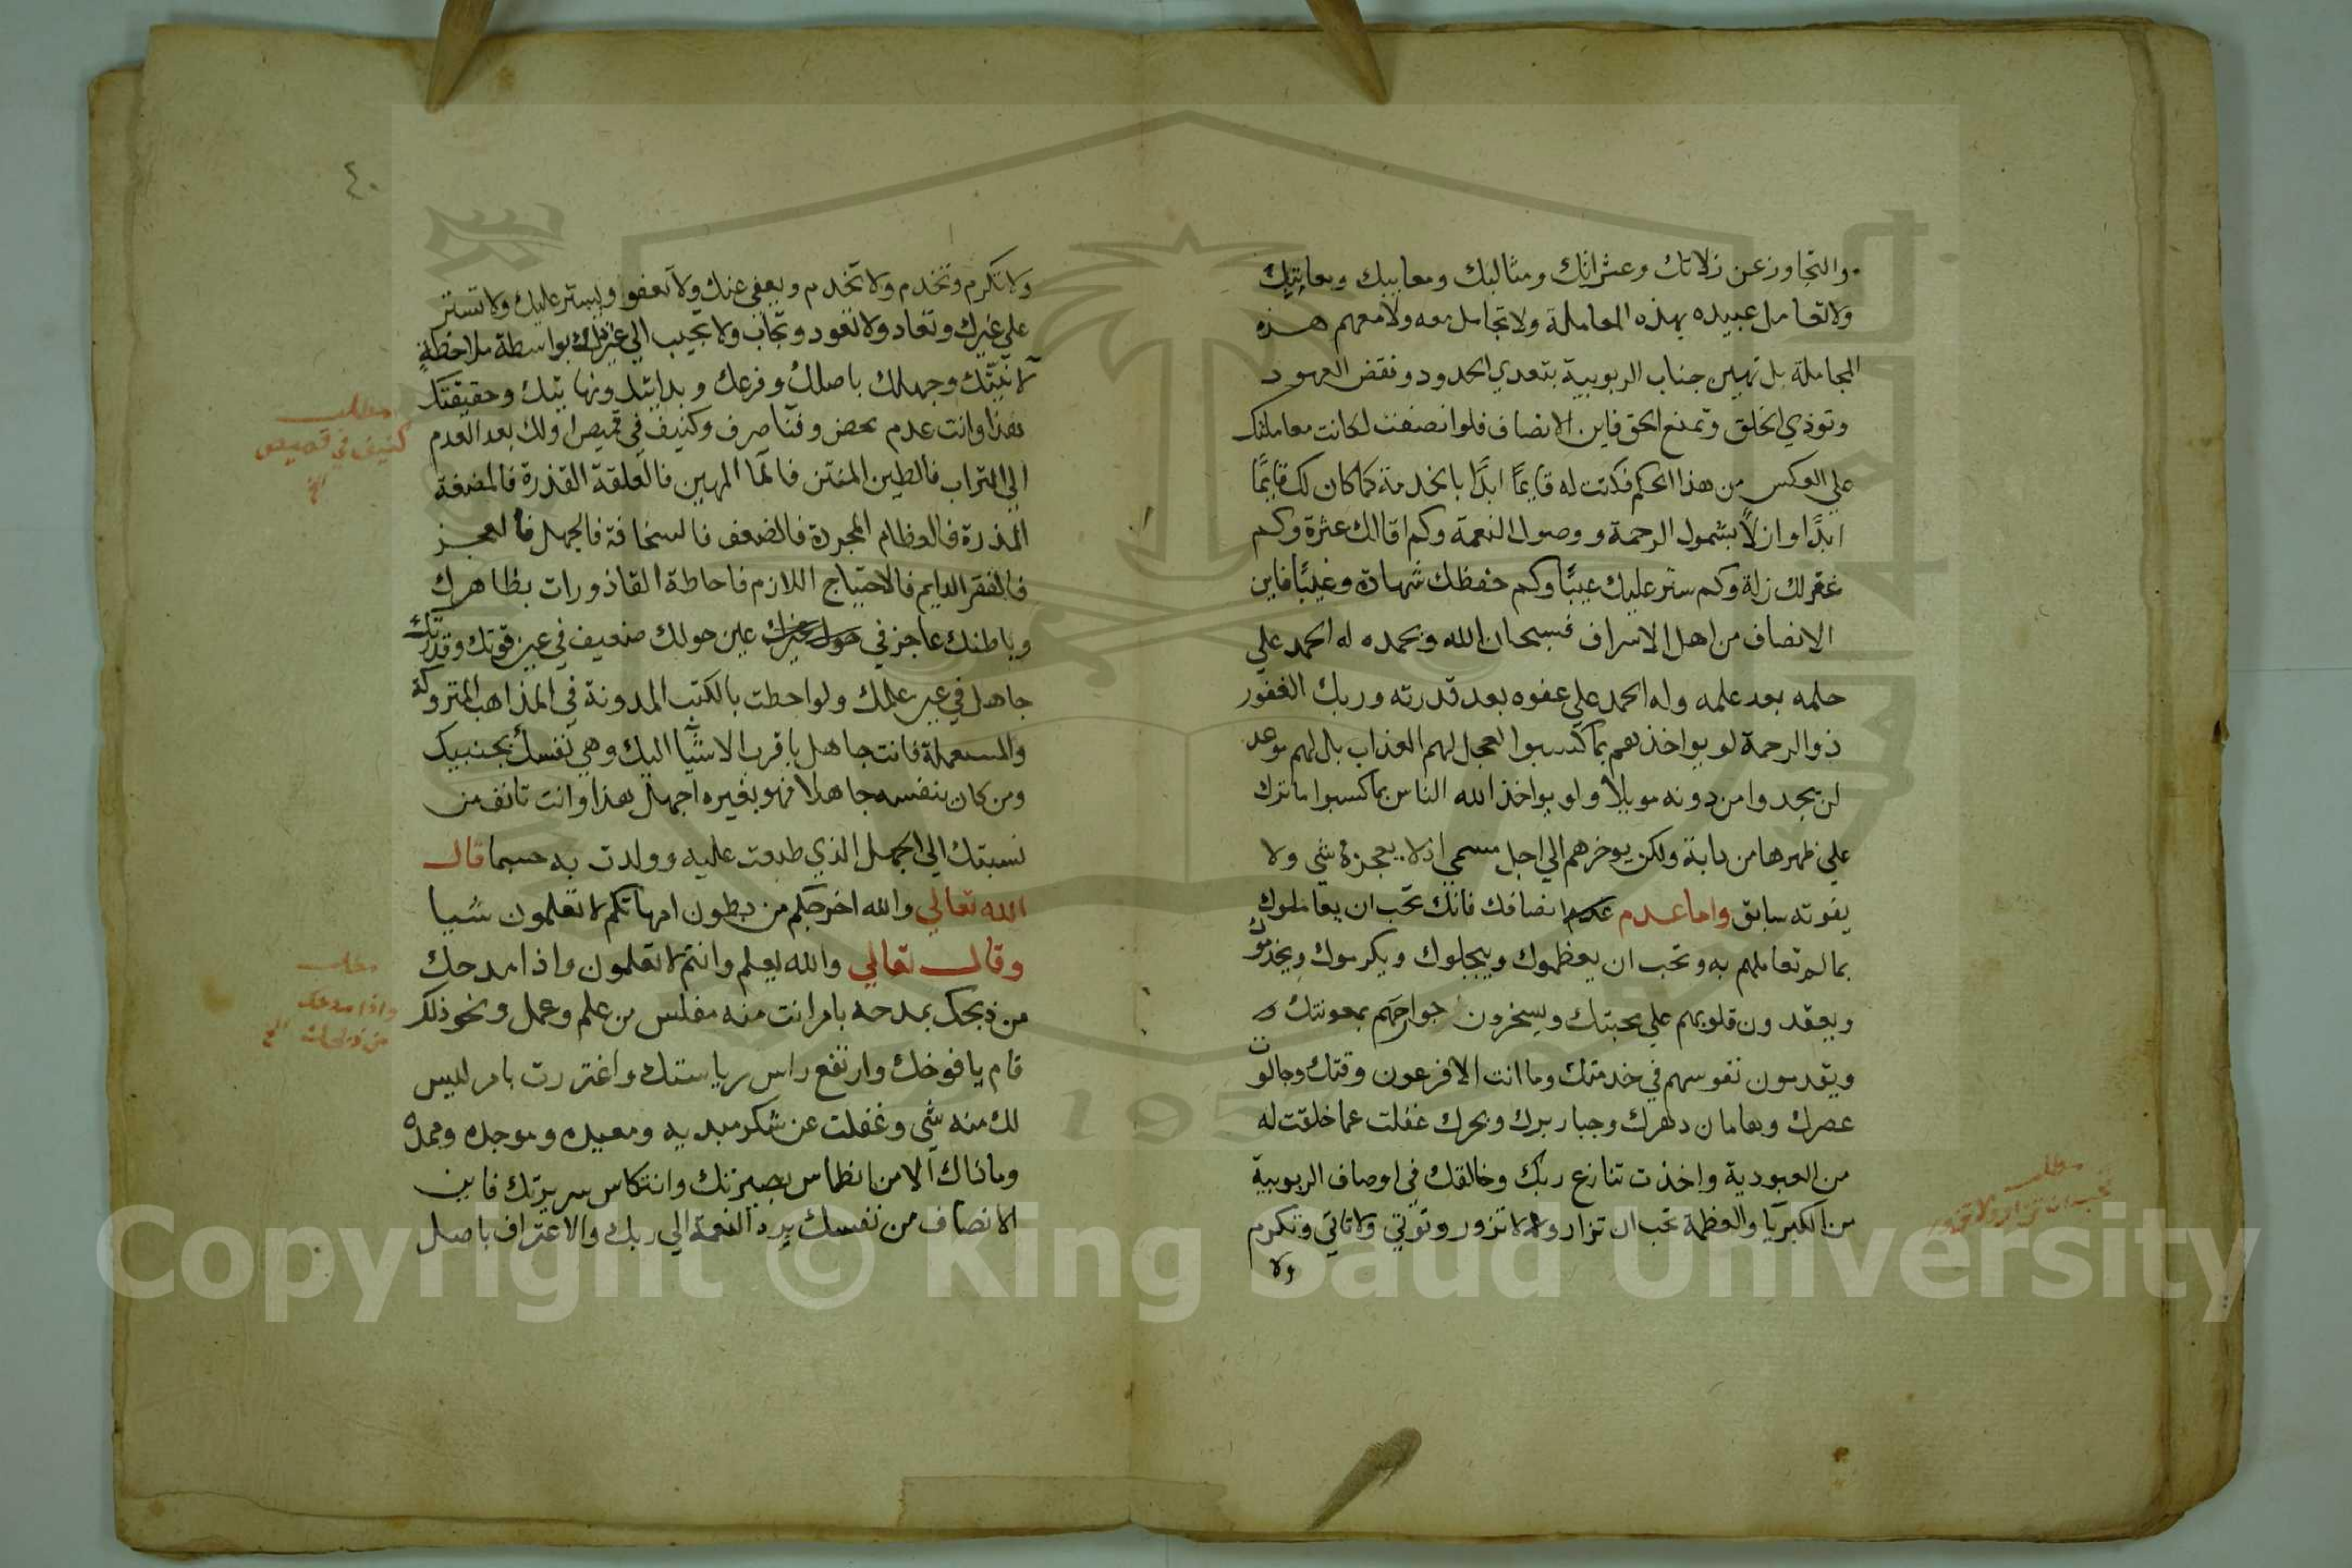 والتجاوز عن زلاتك وعثراتك ومثالبك ومعاييبك ومعايبك
ولا تعامل عبيده بهذه المعاملة ولا تجامل معه ولا معهم هذه
المجاملة بل تهين جناب الربوبية بتعدي الحدود ونقض العهود
وتوذي الخلق وتمنع الحق فاين الانصاف فلو انصفت لكانت معاملتك
علي العكس من هذا الحكم فكنت له قايمًا ابدًا بالخدمة كما كان لك قايمًا
ابدًا وازلاً بشمول الرحمة ووصول النعمة وكم اقالك عثرة وكم
غفر لك زلة وكم ستر عليك عيبًا وكم حفظك شهادة وغيبًا فاين
الانصاف من اهل الاسراف فسبحان الله وبحمده له الحمد علي
حلمه بعد علمه وله الحمد علي عفوه بعد قدرته وربك الغفور
ذو الرحمة لو يواخذهم بما كسبوا لعجل لهم العذاب بل لهم موعد
لن يجدوا من دونه موئلا ولو يواخذ الله الناس بما كسبوا ما ترك
علي ظهرها من دابة ولكن يوخرهم الي اجل مسمي اذ لا يعجزه شي ولا
يفوته سابق واما عدم انصافك فانك تحب ان يعاملوك
بما لم تعاملهم به وتحب ان يعظموك ويبجلوك ويكرموك ويخدموك
ويعقدون قلوبهم علي محبتك ويسخرون جوارحهم بمعونتك
ويقدمون نفوسهم في خدمتك وما انت الا فرعون وقتك وجالوت
عصرك وهامان دهرك وجبار برك وبحرك غفلت عما خلقت له
من العبودية واخذت تنازع ربك وخالقك في اوصاف الربوبية
من الكبريآ والعظمة تحب ان تزار ولا تزور وتوتي ولا تاتي وتكرم
ولا
مطلب
تحب ان تزار ولا تزور
٤٠
ولا تكرم وتخدم ولا تخدم ويعفي عنك ولا تعفو ويستر عليك ولا تستر
علي غيرك وتعاد ولا تعود وتجاب ولا تجيب الي غير ذلك بواسطة ملاحظة
لانيتك وجهلك باصلك وفرعك وبدايتك ونهايتك وحقيقتك
هذا وانت عدم محض وفنآ صرف وكنيف في قميص اولك بعد العدم
الي التراب فالطين المنتن فالمآ المهين فالعلقة القذرة فالمضغة
المذرة فالعظام المجردة فالضعف فالسخافة فالجهل فالعجز
فالفقر الدايم فالاحتياج اللازم فاحاطة القاذورات بظاهرك
وباطنك عاجز في عين حولك ضعيف في عين قوتك وقدرتك
جاهل في عين علمك ولو احطت بالكتب المدونة في المذاهب المتروكة
والمستعملة فانت جاهل باقرب الاشيآ اليك وهي نفسك بجنبيك
ومن كان بنفسه جاهلا فهو بغيره اجهل هذا وانت تانف من
نسبتك الي الجهل الذي طبعت عليه وولدت به حسبما قال
الله تعالي والله اخرجكم من بطون امهاتكم لا تعلمون شيا
وقال تعالي والله يعلم وانتم لا تعلمون واذا مدحك
من ذبحك بمدحه بامر انت منه مفلس من علم وعمل ونحو ذلك
قام يافوخك وارتفع راس رياستك واغتررت بامر ليس
لك منه شي وغفلت عن شكر مبديه ومعيده وموجده وممده
وما ذاك الا من انطماس بصيرتك وانتكاس سريرتك فاين
الانصاف من نفسك برد النعمة الي ربك والاعتراف باصل
مطلب
كنيف في قميص
الخ
مطلب
واذا مدحك
من ذبحك الخ
Copyright © King Saud University
195